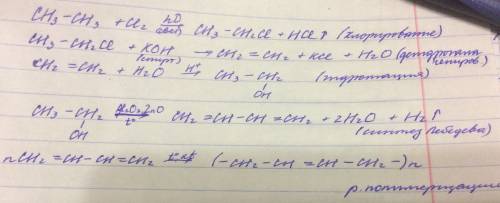 CH₃-CH₃ + Cl₂ hν свет CH₃-CH₂Cl + HCl↑ (хлорирование)
CH₃-CH₂Cl + KOH (спирт) → CH₂=CH₂ + KCl + H₂O
CH₂=CH₂ + H₂O H⁺→ CH₃-CH₂ (гидратация)
OH
CH₃-CH₂ Al₂O₃ZnO t° CH₂=CH-CH=CH₂ + 2H₂O + H₂↑
OH (синтез Лебедева)
nCH₂=CH-CH=CH₂ t° kt → (-CH₂-CH=CH-CH₂-)n
р. полимеризации